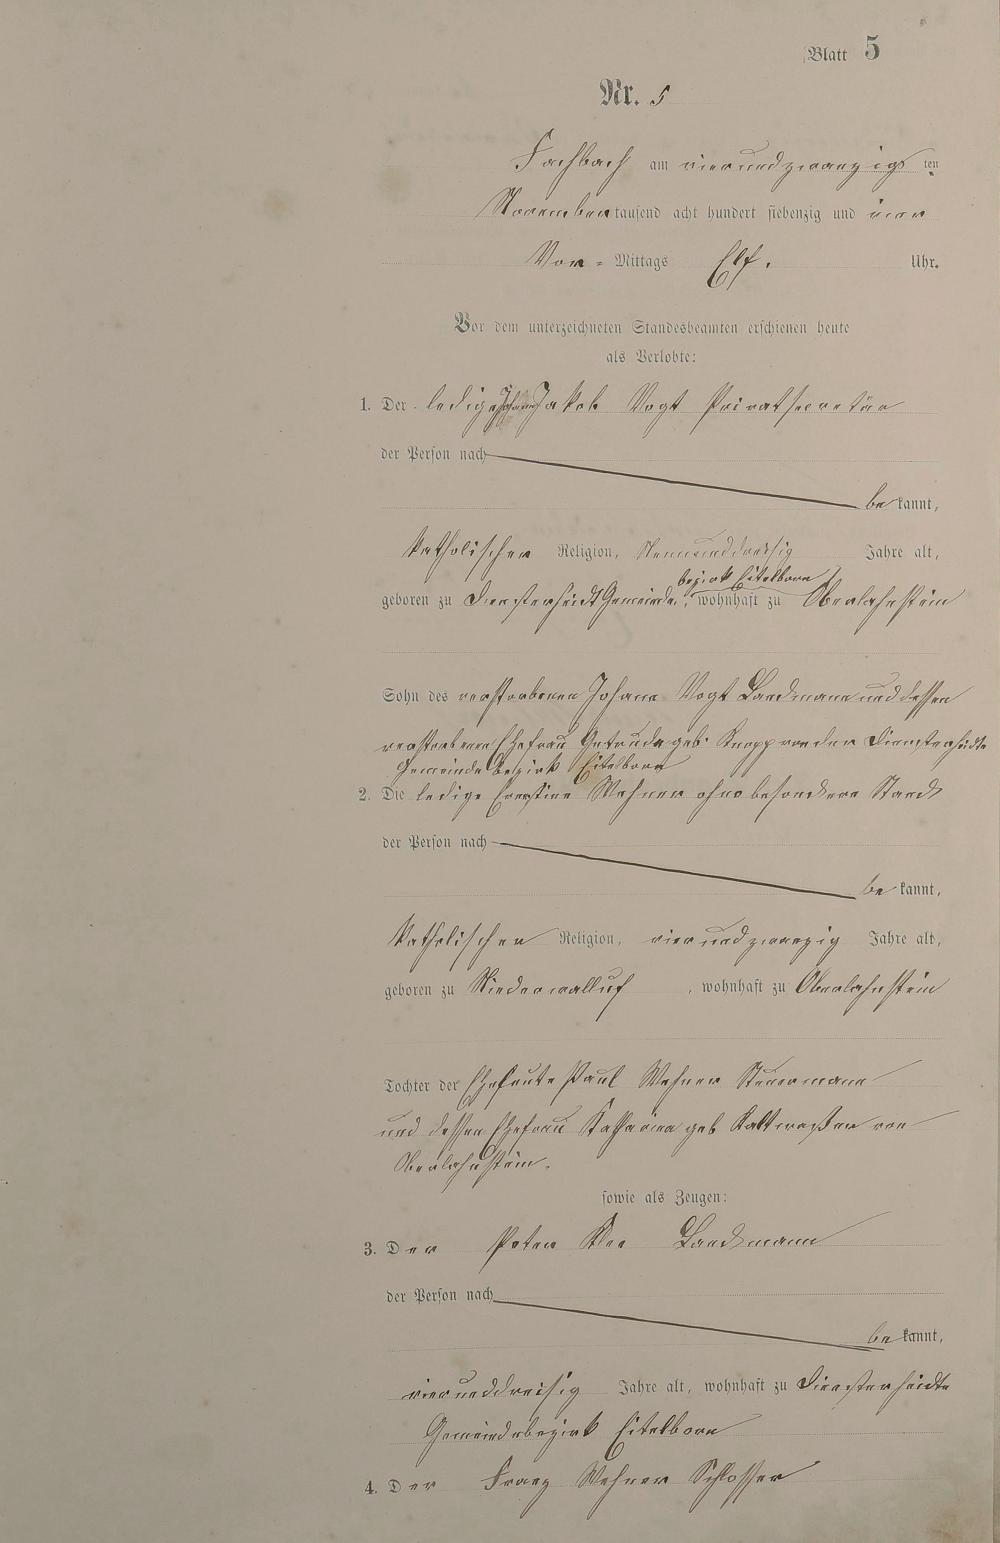 Blatt 5
Nr. 5
Fachbach am vierundzwanzigsten
November tausend acht hundert siebenzig und vier
Vor = Mittags Elf. Uhr.
Vor dem unterzeichneten Standesbeamten erschienen heute
als Verlobte:
1. Der ledige Johann Jakob Vogt Privatsecretär
der Person nach
be kannt,
katholischer Religion, Neununddreisig Jahre alt,
bezirk Eitelborn
geboren zu Diensterheidt Gemeinde, wohnhaft zu Oberlahnstein
Sohn des verstorbenen Johann Vogt Landmann und dessen
verstorbenen Ehefrau Gertrude geb. Knopp von der Diensterheidte
Gemeinde Bezirk Eitelborn
2. Die ledige Ernstine Wehner ohne besondern Stand
der Person nach
be kannt,
Katholischer Religion, vierundzwanzig Jahre alt,
geboren zu Niederwalluf, wohnhaft zu Oberlahnstein
Tochter der Eheleute Paul Wehner Steuermann
und dessen Ehefrau Katharina geb Kaltwaßer von
Oberlahnstein.
sowie als Zeugen:
3. Der Peter Landmann
der Person nach
be kannt,
vierunddreisig Jahre alt, wohnhaft zu Diensterheidte
Gemeindebezirk Eitelborn
4. Der Franz Wehner Schlosser